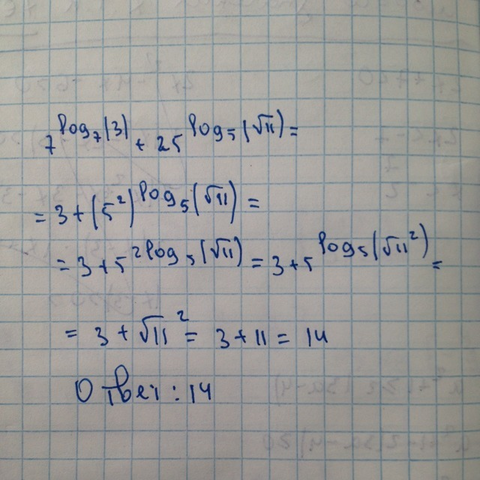 7^log₇(3) + 25^log₅(√11) =
= 3 + (5²)^log₅(√11) =
= 3 + 5^2log₅(√11) = 3 + 5^log₅(√11²) =
= 3 + √11² = 3 + 11 = 14
Ответ: 14